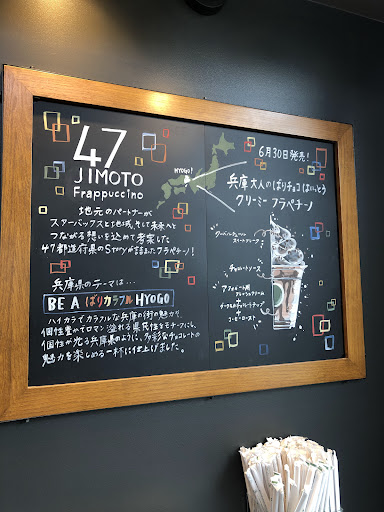 47
JIMOTO
Frappuccino
地元のパートナーが
スターバックスと地域、そして未来へと
つながる想いを込めて考案した
47都道府県のStoryが詰まったフラペチーノ!
兵庫県のテーマは…
BE A ばりカラフル HYOGO
ハイカラでカラフルな兵庫の街の魅力や、
個性豊かでロマン溢れる県民性をモチーフにし、
個性が光る兵庫県のように、多彩なチョコレートの
魅力を楽しめる一杯に仕上げました。
HYOGO!
6月30日発売!
兵庫 大人のばりチョコ はいっとう
クリーミー フラペチーノ
チョコレートソース
コーヒーロースト